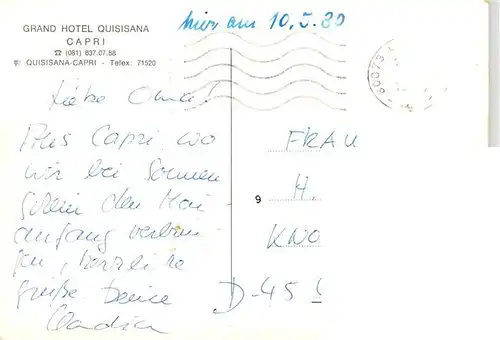 GRAND HOTEL QUISISANA
CAPRI
☎ (081) 837.07.88
QUISISANA-CAPRI - Telex: 71520
hier am 10.5.80
Liebe Oma!
Aus Capri, wo
wir bei Sonnen
schein den Mai-
anfang verbrin-
gen, herzliche
Grüße Deine
Claudia
FRAU
H.
9
KNO
D-45
80073